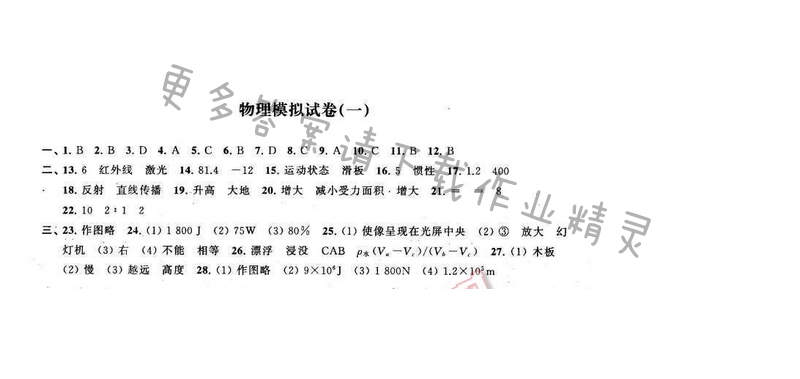 物理模拟试卷(一)
一、1. B 2. B 3. D 4. A 5. C 6. B 7. D 8. C 9. A 10. C 11. B 12. B
二、13. 6 红外线 激光 14. 81.4 -12 15. 运动状态 滑板 16. 5 惯性 17. 1.2 400
18. 反射 直线传播 19. 升高 大地 20. 增大 减小受力面积·增大 21. = = 8
22. 10 2∶1 2
三、23. 作图略 24. (1) 1 800 J (2) 75W (3) 80% 25. (1) 使像呈现在光屏中央 (2) ③ 放大 幻
灯机 (3) 右 (4) 不能 相等 26. 漂浮 浸没 CAB ρ水(Va-Vc)/(Vb-Vc) 27. (1) 木板
(2) 慢 (3) 越远 高度 28. (1) 作图略 (2) 9×10⁶J (3) 1 800N (4) 1.2×10⁵m
更多答案请下载作业精灵